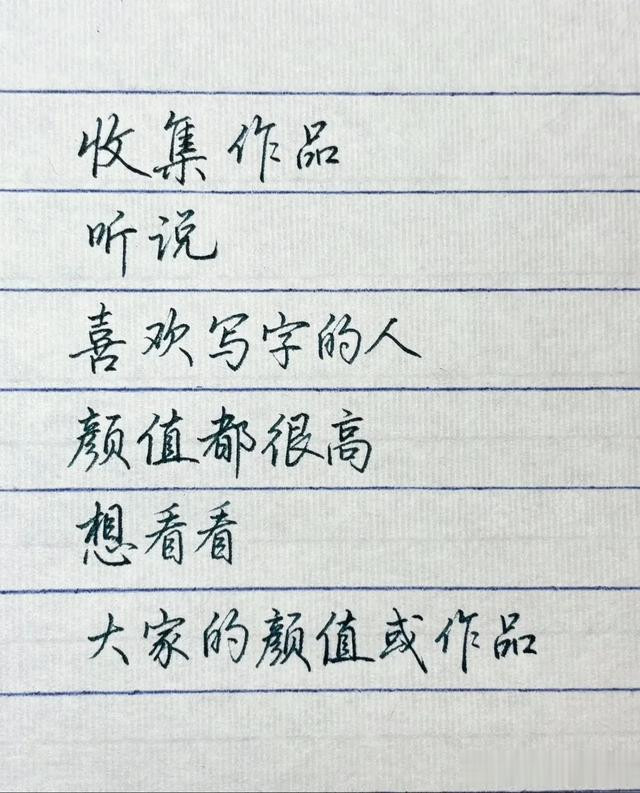 收集作品
听说
喜欢写字的人
颜值都很高
想看看
大家的颜值或作品